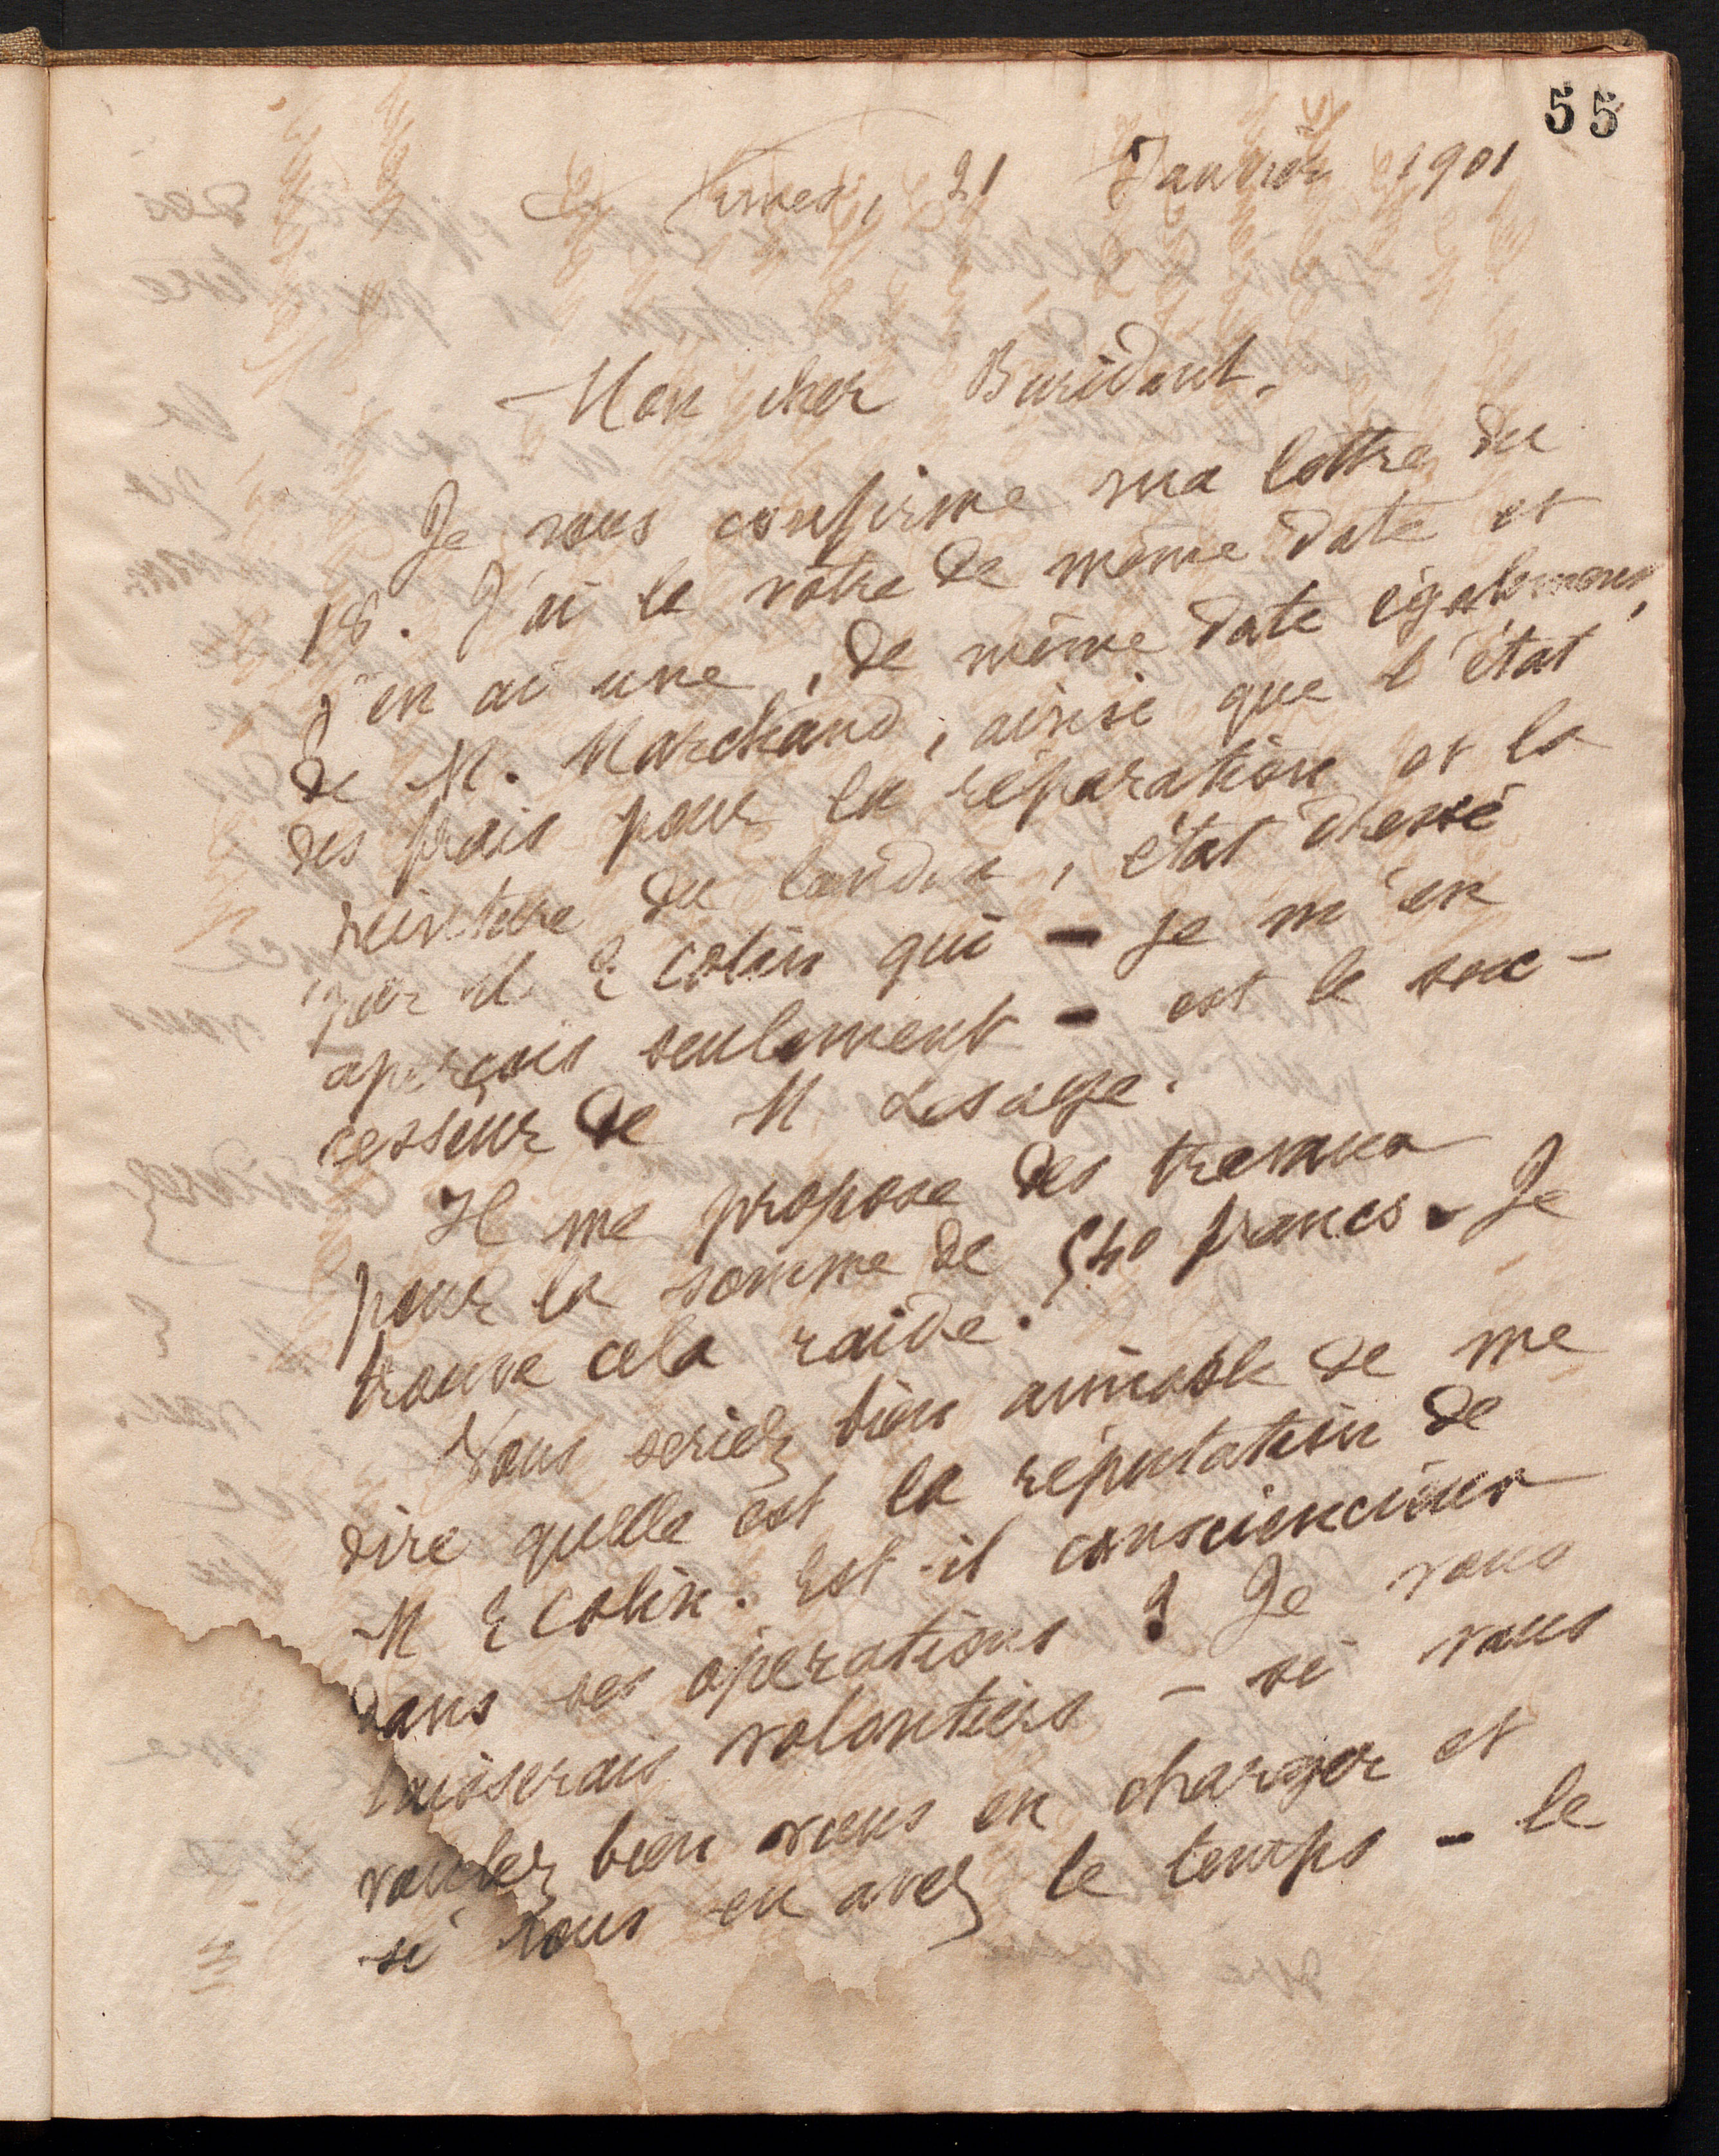 55
21 Janvier 1901
Mon cher Buridant,
Je vous confirme ma lettre du
18. J'ai la votre de même date et
j'en ai une, de même date également,
de M. Marchand, ainsi que l'état
des frais pour la réparation et la
peinture du landau, état dressé
par M. Ecolin qui - je m'en
aperçois seulement - est le suc-
cesseur de M Lesage.
Il me propose des travaux
pour la somme de 540 francs. Je
trouve cela raide.
Vous seriez bien aimable de me
dire quelle est la réputation de
M Ecolin. Est-il consciencieux
dans ses opérations ? Je vous
laisserais volontiers - si vous
voulez bien vous en charger et
si vous en avez le temps - le